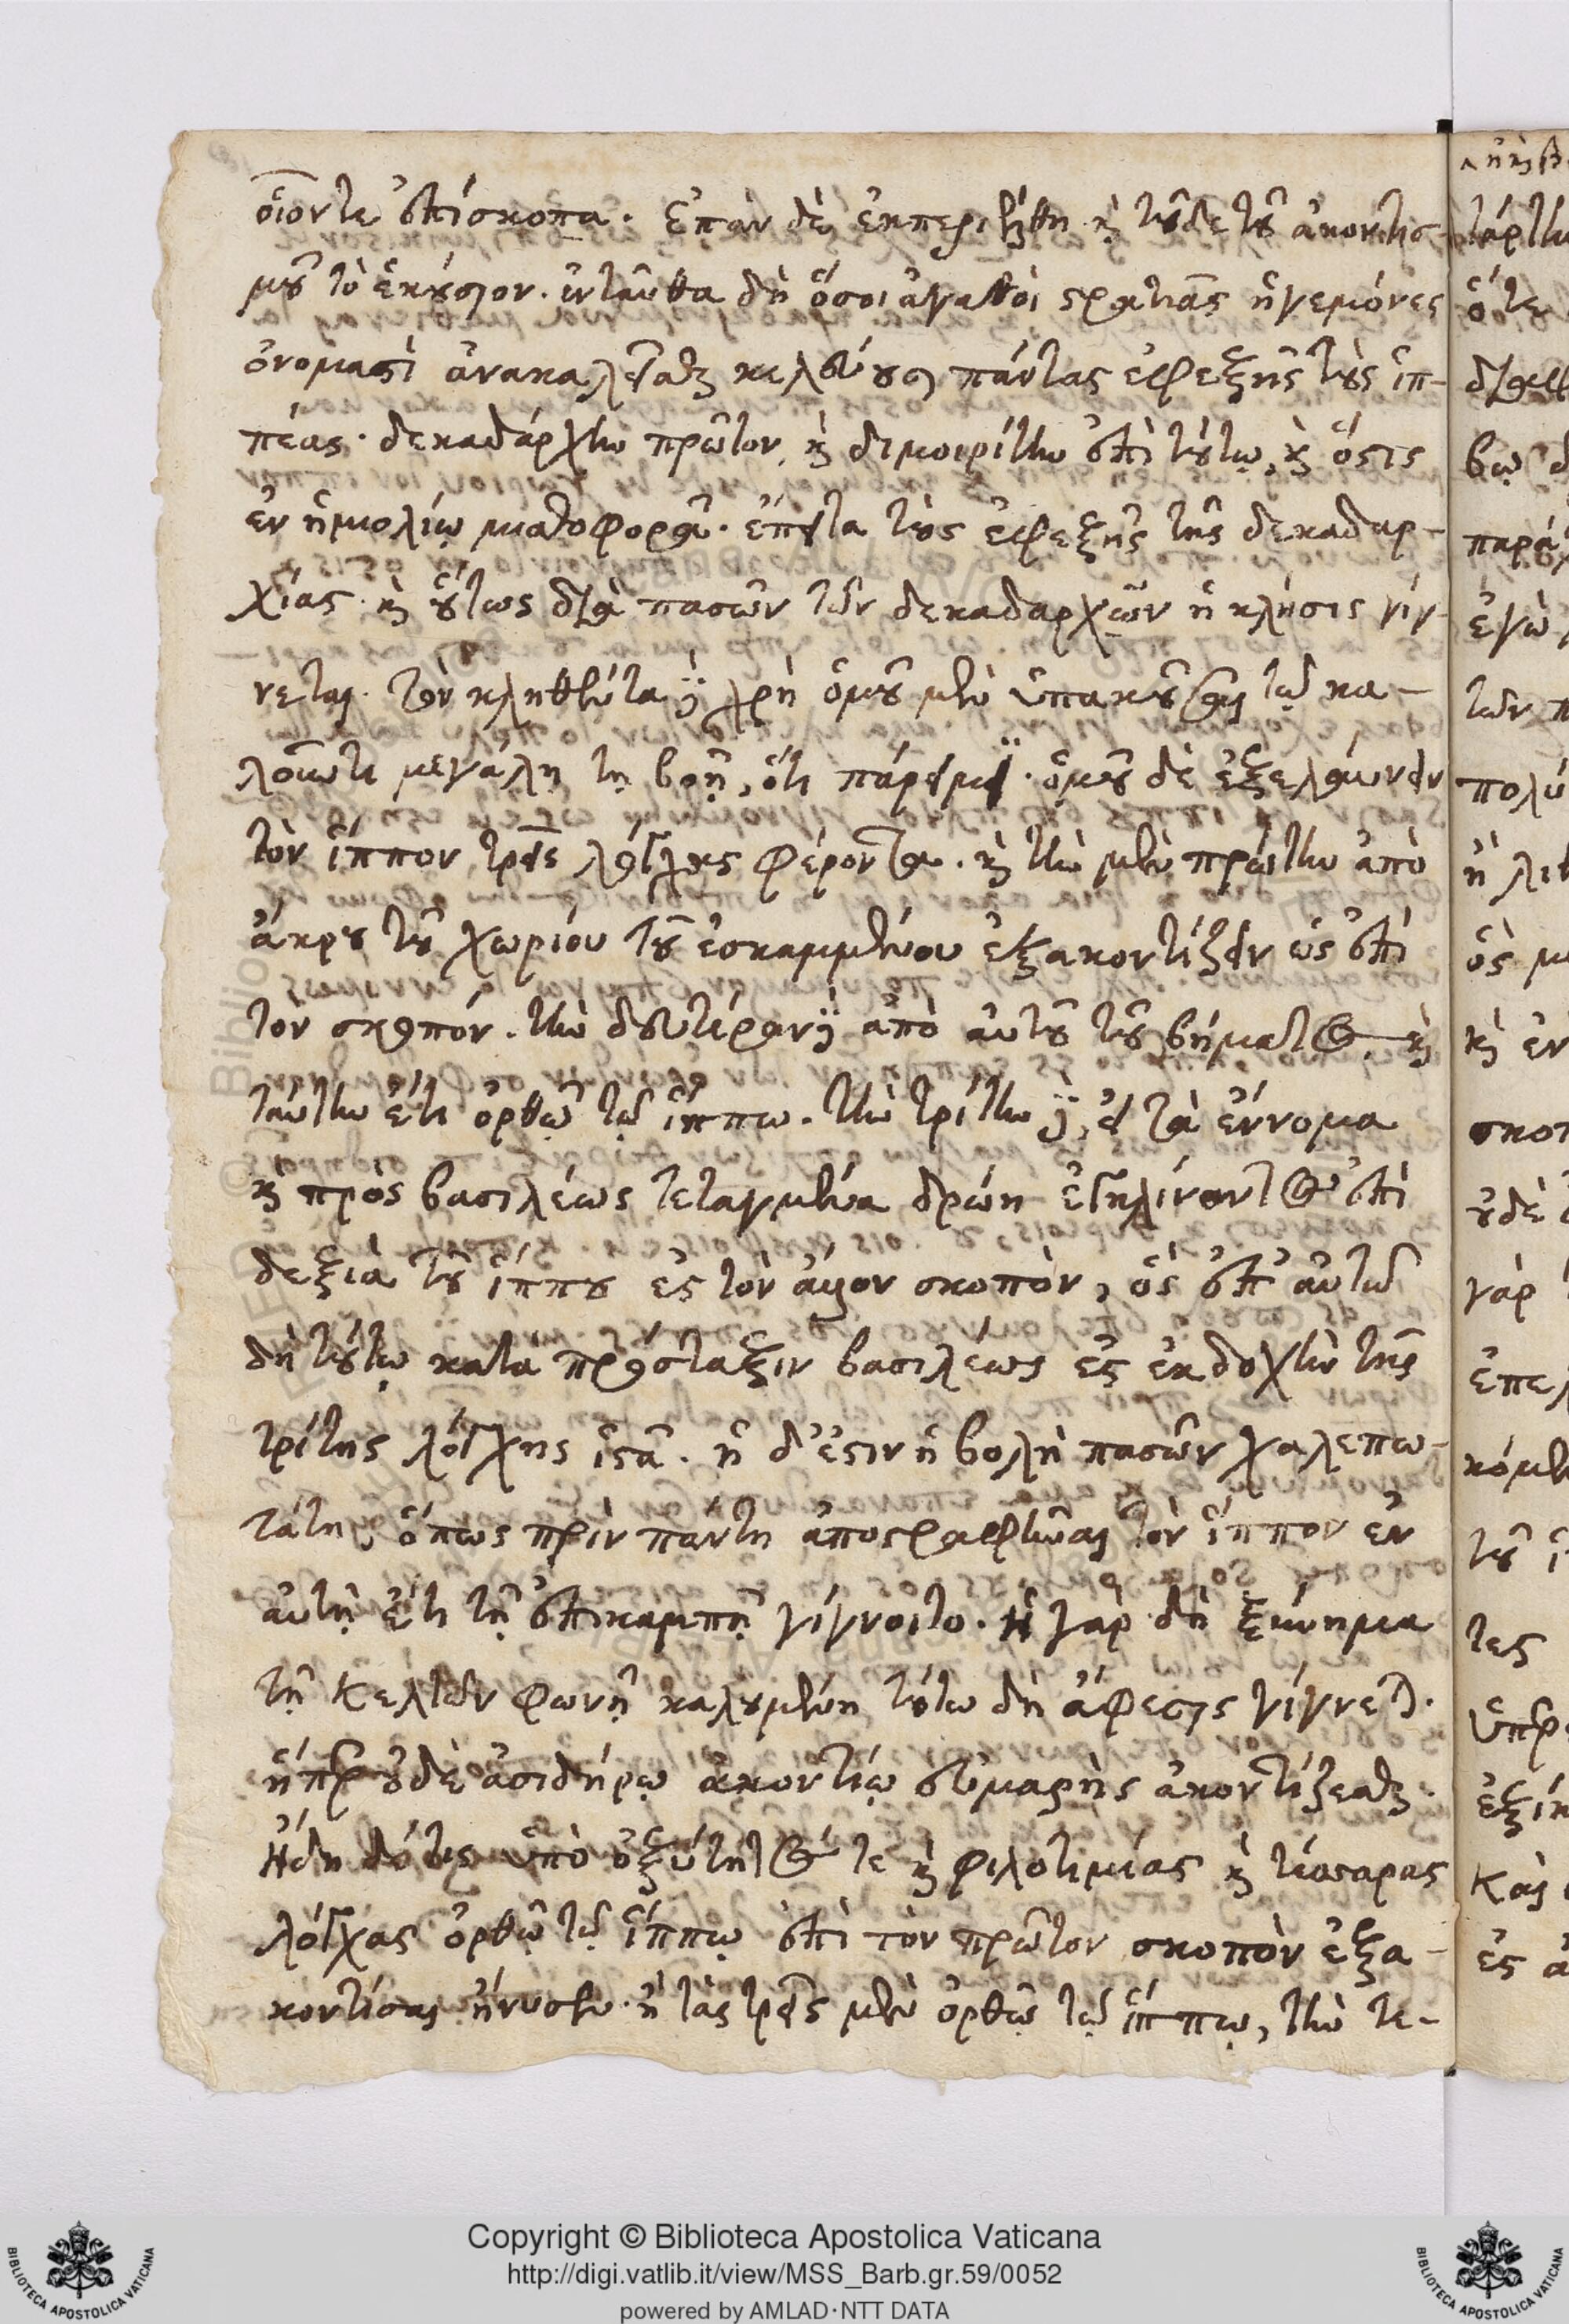 οἷόν τε ἐπίσκοπα. Ἐπὰν δὲ ἐκπεριέλθῃ καὶ τοῦδε τοῦ ἀκοντισ-
μοῦ τὸ ἑκούσιον. ἐνταῦθα δὴ ὅσοι ἀγαθοὶ στρατιᾶς ἡγεμόνες
ὀνομαστὶ ἀνακαλεῖσθαι κελεύουσι πάντας ἐφεξῆς τοὺς ἱπ-
πέας. δεκαδάρχην πρῶτον, καὶ διμοιρίτην ἐπὶ τούτῳ, καὶ ὅστις
ἐν ἡμιολίῳ μισθοφορᾷ. ἔπειτα τοὺς ἐφεξῆς τῆς δεκαδαρ-
χίας. καὶ οὕτως διὰ πασῶν τῶν δεκαδαρχιῶν ἡ κλῆσις γίγ-
νεται. τὸν κληθέντα δὲ χρὴ ὁμοῦ μὲν ὑπακοῦσαι τῷ κα-
λοῦντι μεγάλῃ τῇ βοῇ, ὅτι πάρειμι. ὁμοῦ δὲ ἐξελαύνειν
τὸν ἵππον τρεῖς λόγχας φέροντα. καὶ τὴν μὲν πρώτην ἀπὸ
ἄκρου τοῦ χωρίου τοῦ ἐσκαμμένου ἐξακοντίζειν ὡς ἐπὶ
τὸν σκοπόν. τὴν δευτέραν δὲ ἀπὸ αὐτοῦ τοῦ βήματος. καὶ
ταύτην ἔτι ὀρθῷ τῷ ἵππῳ. τὴν τρίτην δὲ, εἰ τὰ ἔννομα
καὶ πρὸς βασιλέως τεταγμένα δρῴη ἐγκλίναντος ἐπὶ
δεξιὰ τοῦ ἵππου ἐς τὸν ἄλλον σκοπὸν, ὃς ἐπ' αὐτῷ
δὴ τούτῳ κατὰ πρόσταξιν βασιλέως ἐς ἐκδοχὴν τῆς
τρίτης λόγχης ἱστᾶ. ἡ δ' ἔστιν ἡ βολὴ πασῶν χαλεπω-
τάτη, ὅπως πρὶν πάντη ἀποστραφῆναι τὸν ἵππον ἐν
αὐτῇ ἔτι τῇ ἐπικαμπῇ γίγνοιτο. Ἡ γὰρ δὴ ξύνημα
τῇ Κελτῶν φωνῇ καλουμένη τούτω δὴ ἄφεσις γίγνεται.
ἥπερ οὐδὲ ἀσιδήρῳ ἀκοντίῳ εὐμαρὴς ἀκοντίζεσθαι.
Ἤδη δέ τις ὑπὸ ὀξύτητός τε καὶ φιλοτιμίας καὶ τέσσαρας
λόγχας ὀρθῷ τῷ ἵππῳ ἐπὶ τὸν πρῶτον σκοπὸν ἐξα-
κοντίσαι ἤνυσεν. ἢ τὰς τρεῖς μὲν ὀρθῷ τῷ ἵππῳ, τὴν τε-
Copyright © Biblioteca Apostolica Vaticana
http://digi.vatlib.it/view/MSS_Barb.gr.59/0052
powered by AMLAD·NTT DATA
BIBLIOTECA APOSTOLICA VATICANA
BIBLIOTECA APOSTOLICA VATICANA